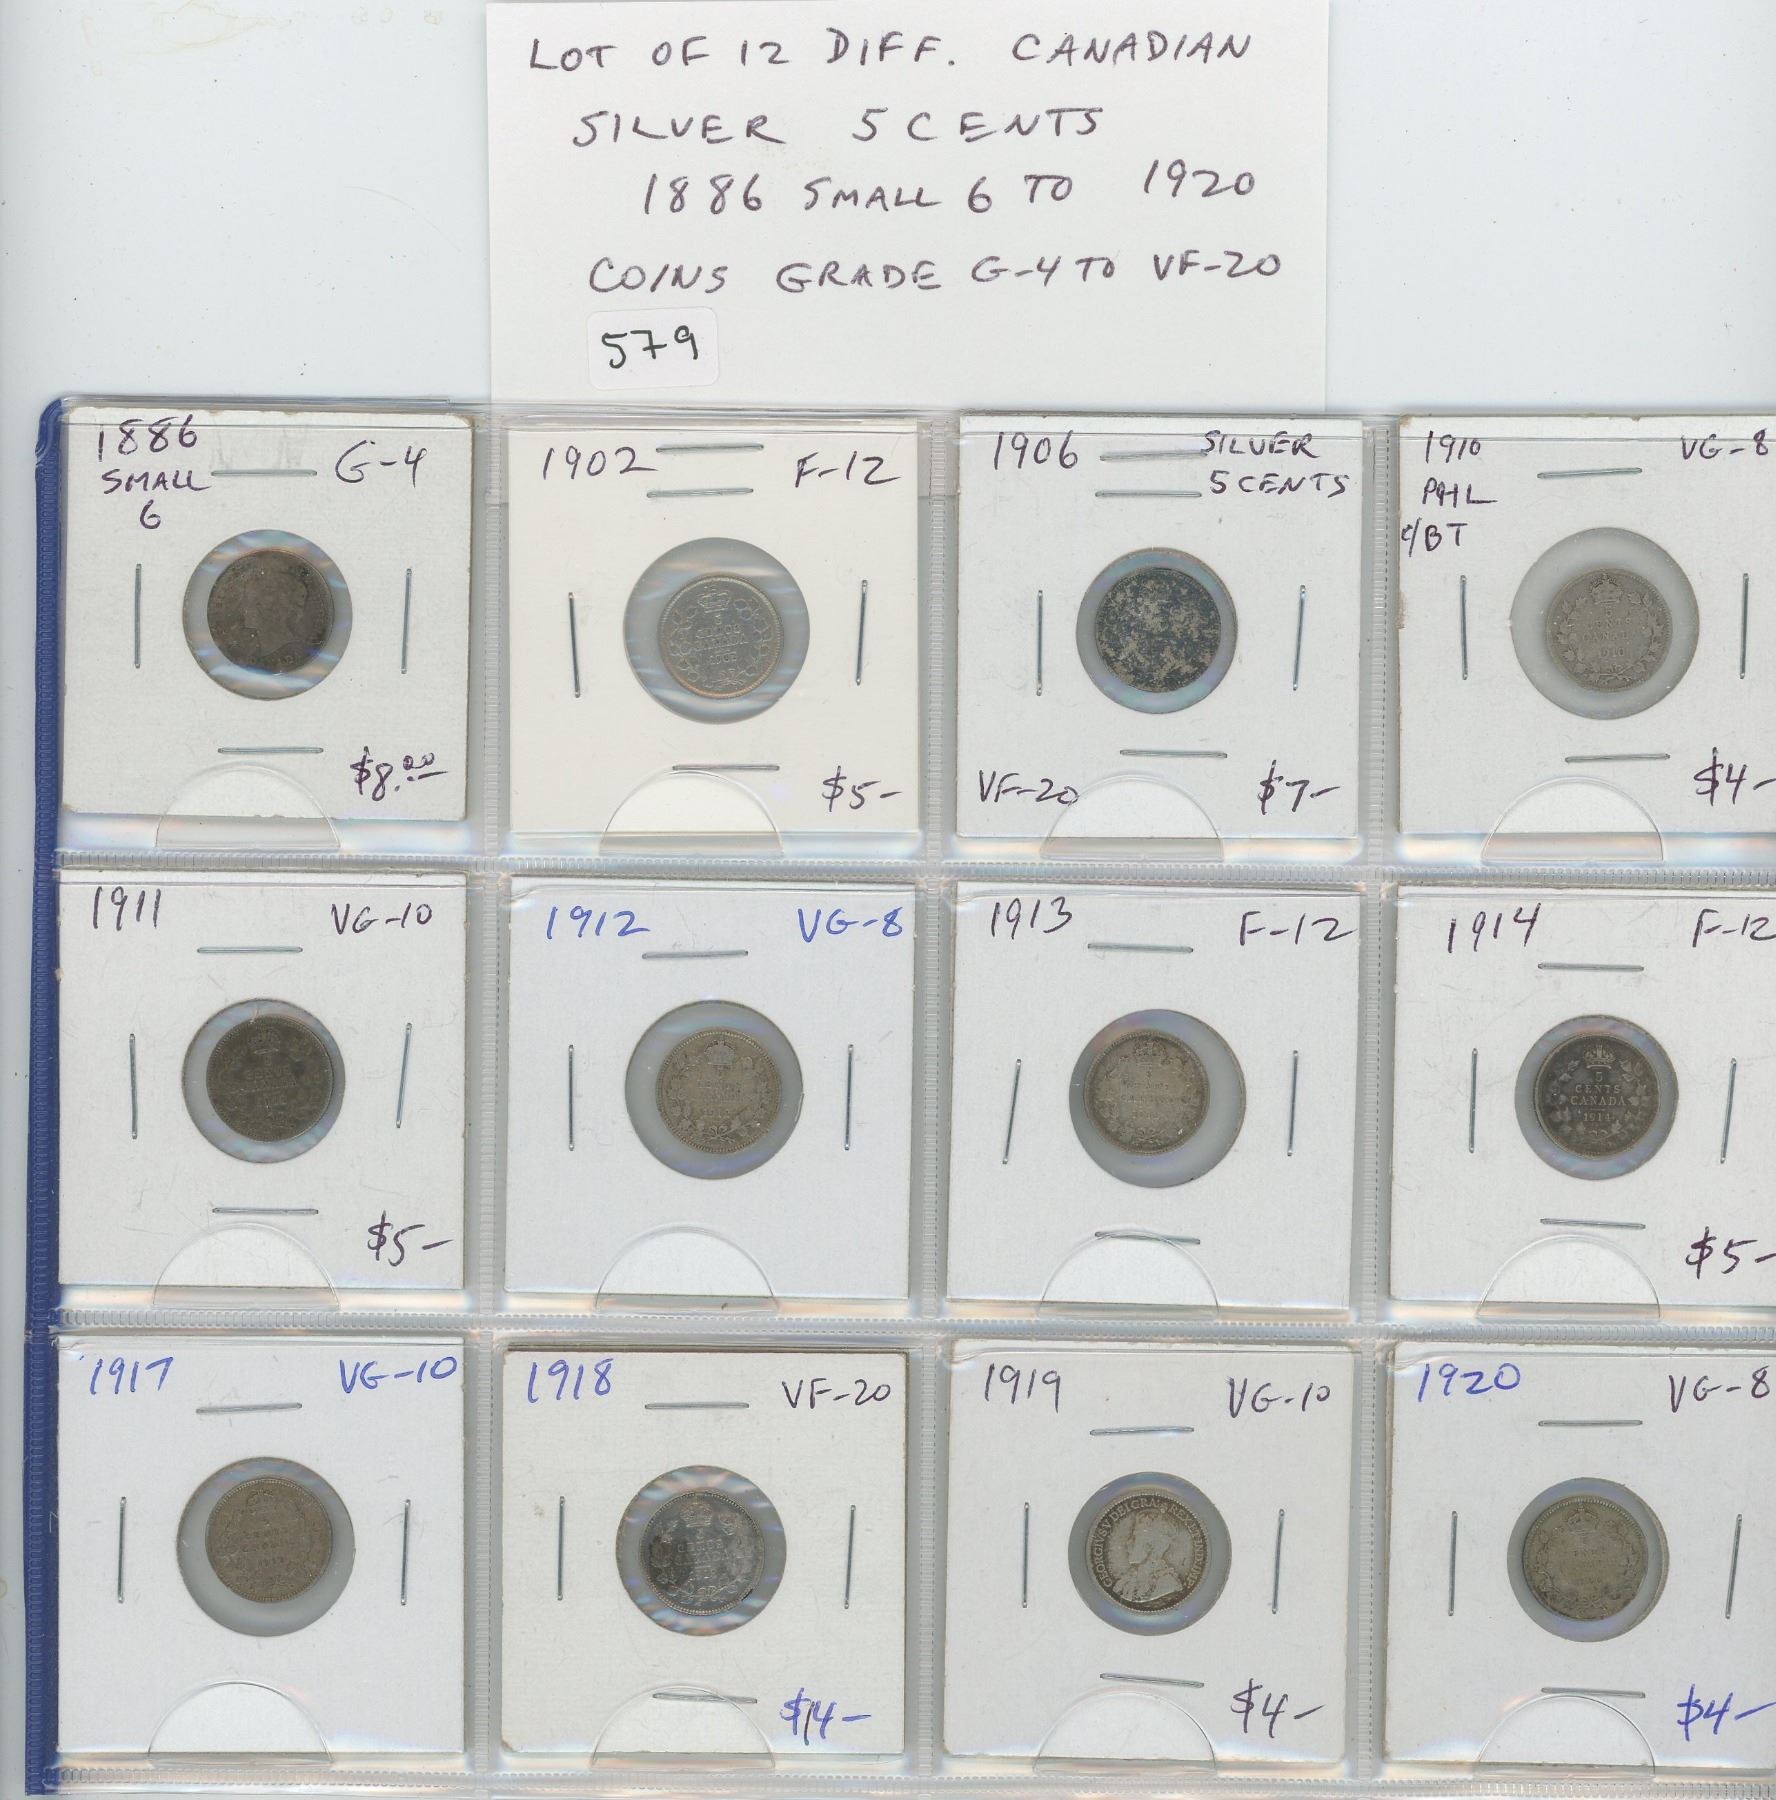 LOT OF 12 DIFF. CANADIAN
SILVER 5 CENTS
1886 SMALL 6 TO 1920
COINS GRADE G-4 TO VF-20
579
1886 G-4
SMALL
6
$8.00
1902 F-12
5
CANADA
1902
$5-
1906 SILVER
5 CENTS
VF-20 $7-
1910 VG-8
PHL
¢/BT
CENTS
1910
$4-
1911 VG-10
$5-
1912 VG-8
1913 F-12
1914 F-12
5
CENTS
CANADA
1914
$5-
1917 VG-10
1918 VF-20
$14-
1919 VG-10
GEORGIVS V DEI GRA: REX ET IND:IMP:
$4-
1920 VG-8
$4-